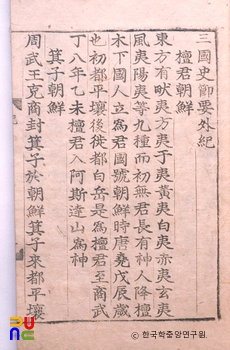 三國史節要外紀
檀君朝鮮
東方有畎夷方夷于夷黃夷白夷赤夷玄夷
風夷陽夷等九種而初無君長有神人降檀
木下國人立為君國號朝鮮時唐堯戊辰歲
也初都平壤後徙都白岳是為檀君至商武
丁八年乙未檀君入阿斯達山為神
箕子朝鮮
周武王克商封箕子於朝鮮箕子来都平壤
한국학중앙연구원